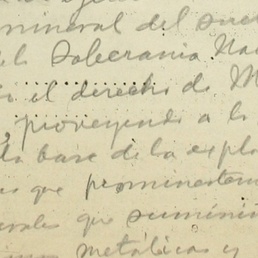 mineral del sue
de la Soberania Na
el derecho de M
, proveyendo a la
la base de la expl
que prominentem
erales que suminis
metálicas y